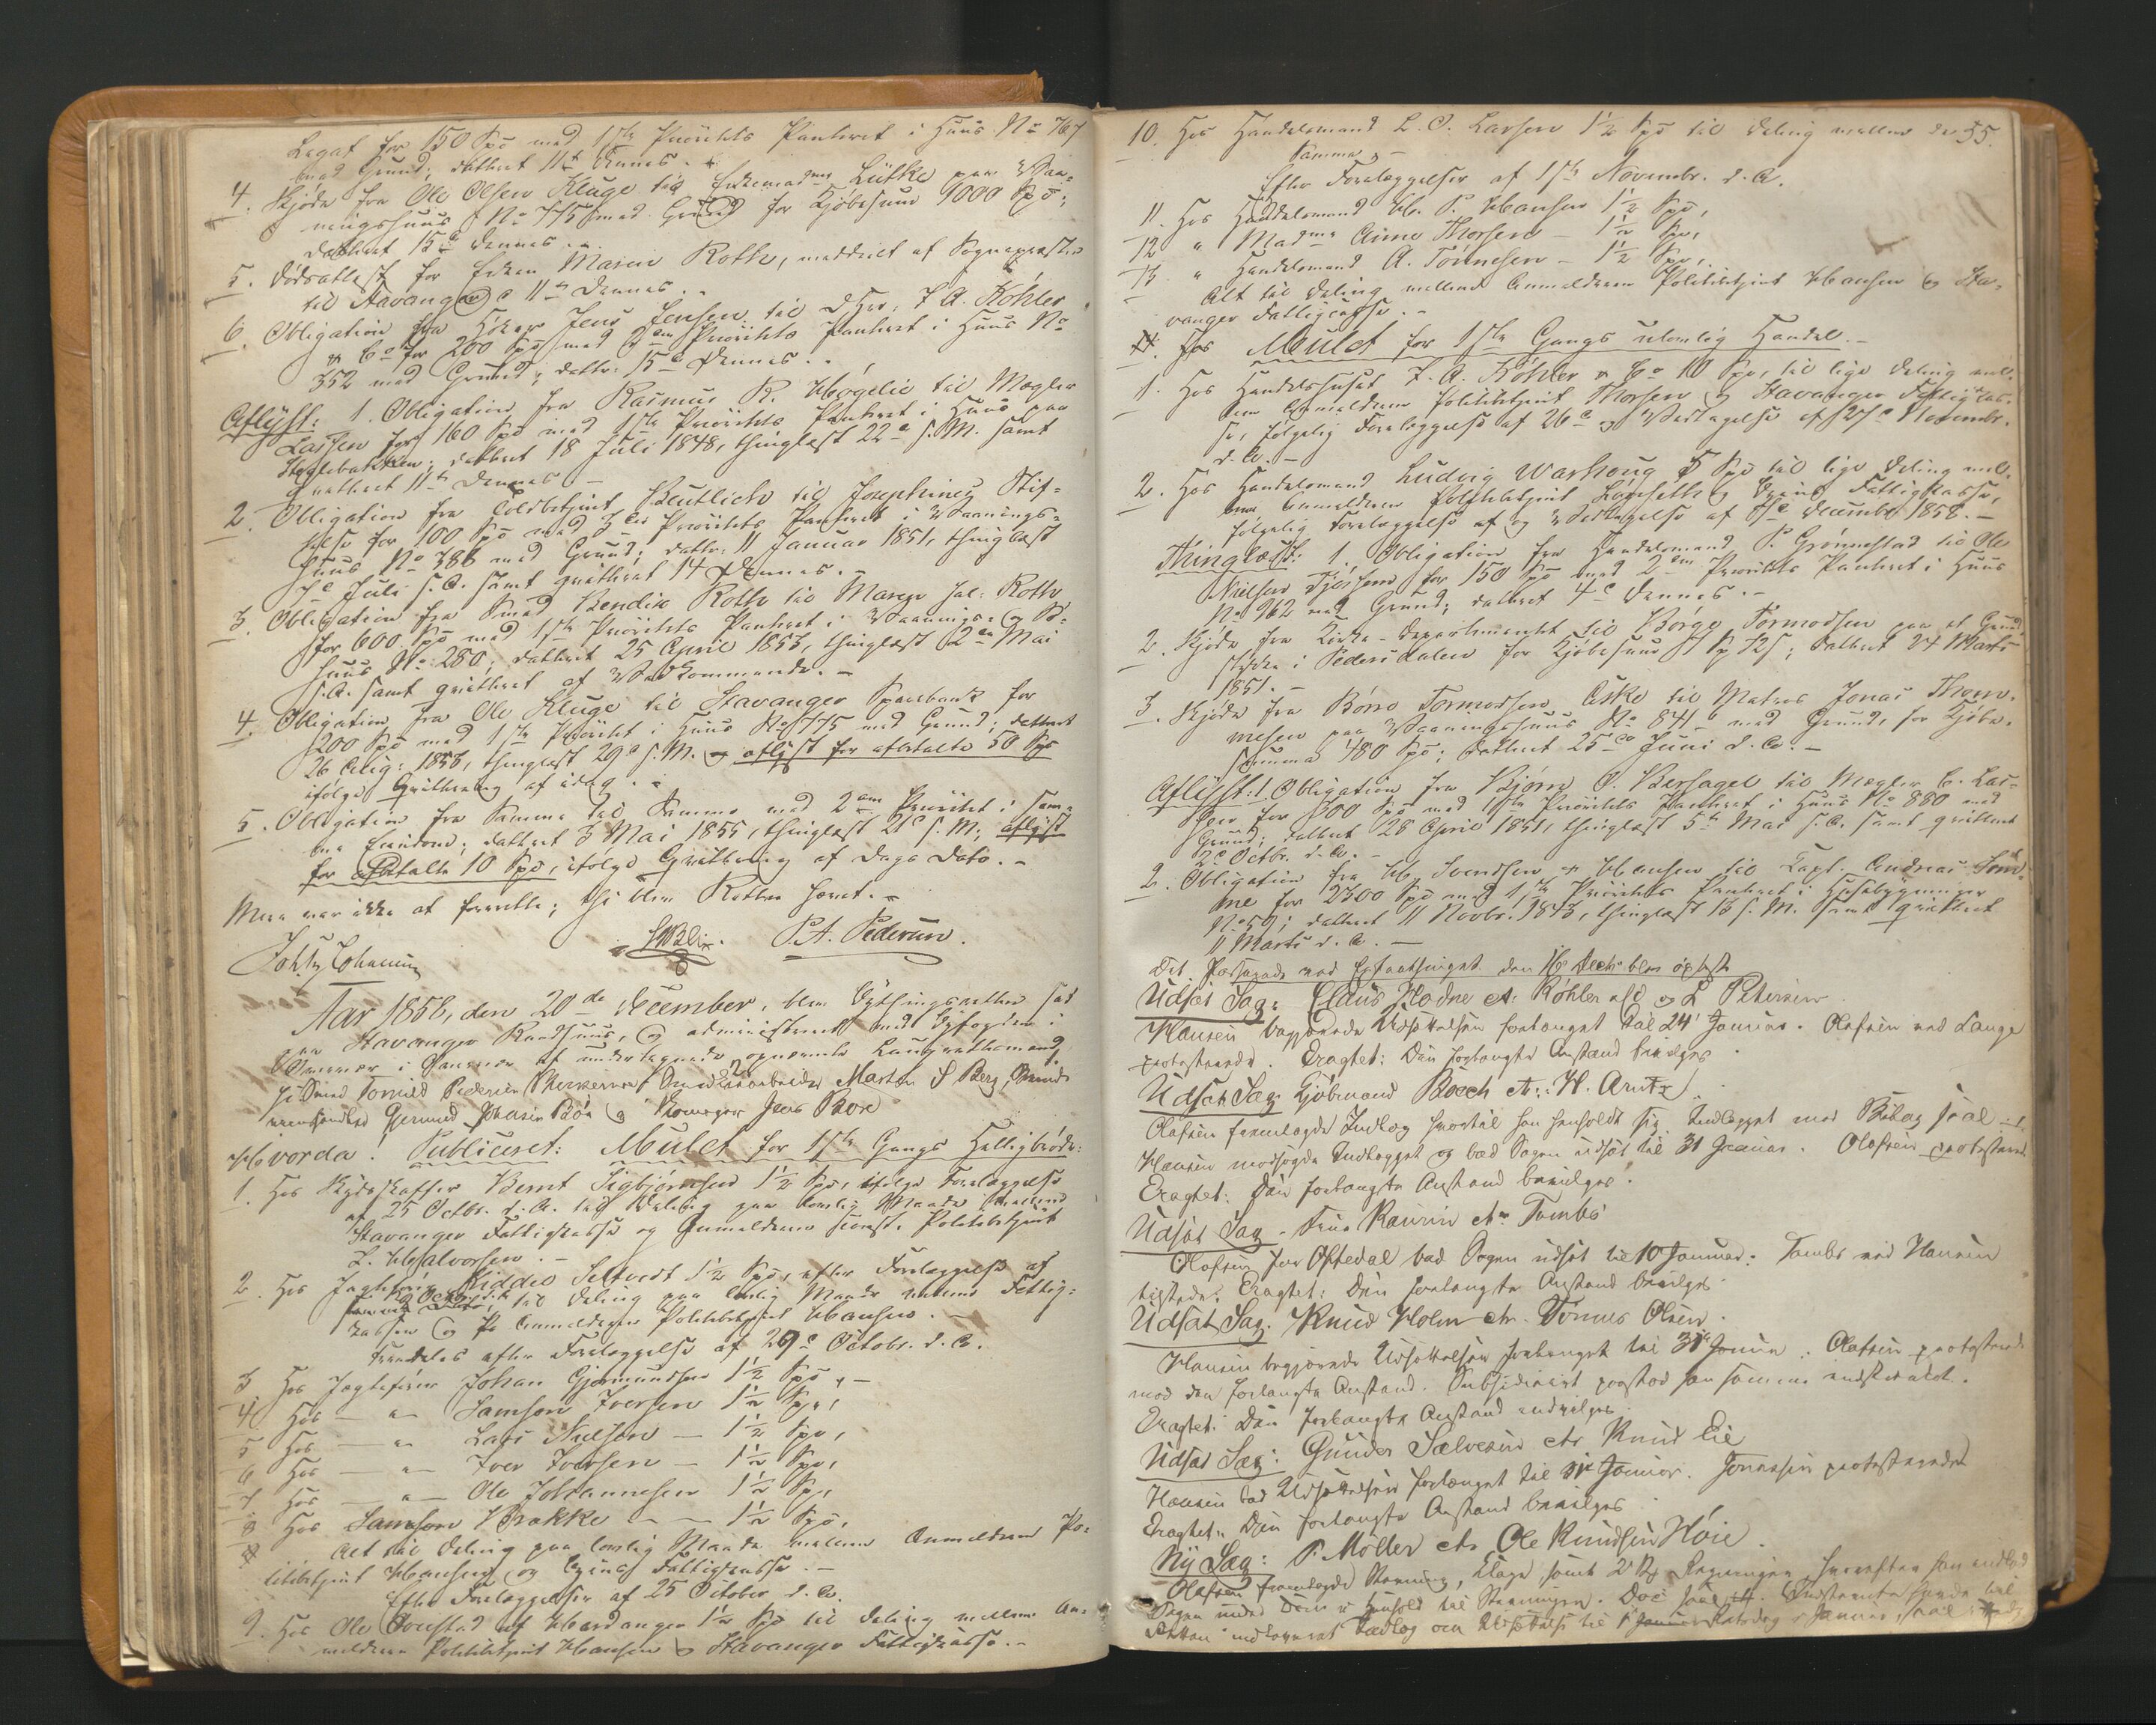 Legat for 150 Spd med 1ste Prioritets Panteret i Huus No 767
med Grund; dateret 11te dennes.
4. Skjøde fra Ole Olsen Kluge til Enkemadme Lütke paa Vaa-
ningshuus No 775 med Grund for Kjøbesum 9000 Spd;
dateret 15de dennes.
5. Dødsattest for Enken Maren Roth, meddeelt af Sognepresten
til Stavanger 11te dennes.
6. Obligation fra Jens Jensen til DHrr. J. A. Köhler
& Co for 200 Spd med Prioritets Panteret i Huus No
352 med Grund; datr. 15de dennes.
Aflyst: 1. Obligation fra Rasmus R. Høgelie til Mægler
Lassen for 160 Spd med 1ste Prioritets Panteret i Huus paa
dateret 18 Juli 1848, thinglæst 22de s. M. samt
qvitteret 11te dennes.
2. Obligation fra Toldbetjent Beutlich til Josephines Stif-
telse for 100 Spd med 3die Prioritets Panteret i Vaanings-
huus No 386 med Grund; datr. 11 Januar 1851, thinglæst
Juli s. A. samt qvitteret 14 dennes.
3. Obligation fra Smed Bendix Roth til Maren sal: Roth
for 600 Spd med 1ste Prioritets Panteret i Vaanings- og
huus No 280; dateret 25 April 1853, thinglæst 2den Mai
s. A. samt qvitteret af Vedkommende.
4. Obligation fra Ole Kluge til Stavanger Sparebank for
200 Spd med 1ste Prioritet i Huus No 775 med Grund; dateret
26 Aug: 1856, thinglæst 29de s. M. og aflyst for afbetalte 50 Spd
ifølge Qvittering af idag.
5. Obligation fra Samme til Samme med 2den Prioritet i sam-
me Eiendom; dateret 3 Mai 1855, thinglæst 21de s. M.; aflyst
for afbetalte 10 Spd, ifølge Qvittering af Dags Dato.
Mere var ikke at foretage; thi blev Retten hævet.
P. A. Pedersen.
Aar 1858, den 20de December, blev Bythingsretten sat
paa Stavanger Raadhuus, og administreret med Byfogden i
Overvær af undertegnede opnævnte Laugrettemænd
Tormod Pedersen Marten S Berg, Brænde-
viinshandler Gjermund Johansen Bøe og Jens Bore
Hvorda. Publiceret: Mulct for 1ste Gangs Helligbrøde:
1. Hos Skydsskaffer Bernt Sigbjørnsen 1½ Spd, ifølge Forelæggelse
af 25 Octbr. d. A. til Deling paa lovlig Maade mellem
Stavanger Fattigkasse og Anmelderen Politibetjent
L. Halvorsen.
2. Hos Jagtefører Kiddel Seltvedt 1½ Spd, efter Forelæggelse af
til Deling paa lovlig Maade mellem Fattig-
kassen og Anmelderen Politibetjent Hansen.
Fremdeles efter Forelæggelse af 29de Octobr. d. A.
3 Hos Jagtefører Johan Gjermundsen 1½ Spd,
4 Hos — " — Samson Iversen 1½ Spd,
5 Hos — " — Lars Nielsen — 1½ Spd,
6 Hos — " — Iver Iversen — 1½ Spd,
7 Hos — " — Ole Johannesen 1½ Spd,
8 Hos Samson Brakke — 1½ Spd.
Alt til Deling paa lovlig Maade mellem Anmelderen Po-
litibetjent Hansen og Byens Fattigkasse.
Efter Forelæggelser af 25 October d. A.
9. Hos Ole Jonstad af Hardanger 1½ Spd til Deling mellem An-
melderen Politibetjent Hansen og Stavanger Fattigkasse.
55.
10. Hos Handelsmand L. O. Larsen 1½ Spd til Deling mellem de
Samme.
Efter Forelæggelser af 1ste Novembr. d. A.
11. Hos Handelsmand H. P. Hansen 1½ Spd,
12 " Madme Anne Thorsen — 1½ Spd,
13 " Handelsmand A. Tönnesen — 1½ Spd,
Alt til Deling mellem Anmelderen Politibetjent Hansen og Sta-
vanger Fattigkasse.
Mulct for 1ste Gangs ulovlig Handel.
1. Hos Handelshuset J. A. Köhler & Co 10 Spd, til lige Deling mel-
lem Anmelderen Politibetjent Thorsen og Stavanger Fattigkas-
se, følgelig Forelæggelse af 26de og Vedtagelse af 27de Novembr.
d. A.
2. Hos Handelsmand Ludvig Warhoug 5 Spd til lige Deling mel-
lem Anmelderen Politibetjent Lögseth og Byens Fattigkasse,
følgelig Forelæggelse af og Vedtagelse af Decembr 1858.
Thinglæst: 1. Obligation fra Handelsmand P. Grönnestad til Ole
Nielsen Tjossem for 150 Spd med 2den Prioritets Panteret i Huus
No 962 med Grund; dateret 4de dennes.
2. Skjøde fra Kirke-Departementet til Börge Tormodsen paa et Grund-
stykke i Pedersdalen for Kjøbesum; dateret 24 Marts
1851.
3. Skjøde fra Börre Tormodsen Aske til Matros Jonas Thom-
mesen paa Vaaningshuus No 841 b med Grund, for Kjøbe-
summa 480 Spd; dateret 25de Juni d. A.
Aflyst: 1 Obligation fra Bjørn O. Bersagel til Mægler C. Las-
sen for 300 Spd med 1ste Prioritets Panteret i Huus No 880 med
Grund; dateret 28 April 1851, thinglæst 5te Mai s. A. samt qvitteret
2de Octbr. d. A.
2. Obligation fra H. Svendsen & Hansen til Capt. Andreas Söm-
me for 2300 Spd med 1ste Prioritets Panteret i Huusbygninger
No 59; dateret 11 Novbr. 1843, thinglæst 13 s. M. samt qvitteret
11 Marts d. A.
Det Passerede ved Extrathinget den 16 Decbr blev oplæst
Udsat Sag: Claus Hodne ctr. Köhler og L Petersen
Hansen begjærede Udsættelsen forlænget til 24 Januar. Olafsen ved Lange
protesterede. Eragtet: Den forlangte Anstand bevilges.
Udsat Sag: Kjöbmand Böech ctr. H. Arntz
Olafsen fremlagde Indlæg hvortil han henholdt sig. Indlægget med Bilag saal.
Hansen modsagde Indlægget og bad Sagen udsat til 31 Januar. Olafsen protesterede
Eragtet: Den forlangte Anstand bevilges.
Udsat Sag. Frue Kaurin ctr Tombs
Olafsen for Oftedal bad Sagen udsat til 10 Januar. Tombs ved Hansen
tilstede. Eragtet: Den forlangte Anstand bevilges.
Udsat Sag. Knud Holm ctr. Tönnes Olsen.
Hansen begjærede Udsættelsen forlænget til 31 Januar. Olafsen protesterede
mod den forlangte Anstand. Subsidiært paastod han samme indskrænket.
Eragtet: Den forlangte Anstand bevilges
Udsat Sag: Gunder Salvesen ctr Knud Lie
Hansen bad Udsættelsen forlænget til 31 Januar. Jonassen protesterede
Eragtet: Den forlangte Anstand bevilges
Ny Sag: P. Möller ctr Ole Knudsen Höie.
Olafsen fremlagde Stævning, Klage, samt 2 Regninger hvorefter han indlod
Sagen under Dom i Henhold til Stævningen.